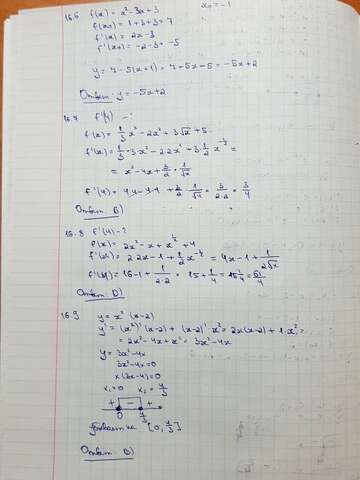 16.6 f(x) = x² - 3x + 3 x₀ = -1
f(x₀) = 1 + 3 + 3 = 7
f'(x) = 2x - 3
f'(x₀) = -2 - 3 = -5
y = 7 - 5(x+1) = 7 - 5x - 5 = -5x + 2
Ответ: y = -5x + 2
16.7 f'(4) - ?
f(x) = 1/3 x³ - 2x² + 3√x + 5
f'(x) = 1/3 · 3x² - 2·2x + 3 · 1/2 x^(-1/2) =
= x² - 4x + 3/2 · 1/√x
f'(4) = 4·4 - 4·4 + 3/2 · 1/√4 = 3/2·2 = 3/4
Ответ: B)
16.8 f'(4) - ?
f(x) = 2x² - x + x^(1/2) + 4
f'(x) = 2·2x - 1 + 1/2 x^(-1/2) = 4x - 1 + 1/2√x
f'(4) = 16 - 1 + 1/2·2 = 15 + 1/4 = 15 1/4 = 61/4
Ответ: D)
16.9 y = x² (x-2)
y' = (x²)' (x-2) + (x-2)' · x² = 2x(x-2) + 1·x² =
= 2x² - 4x + x² = 3x² - 4x
y = 3x² - 4x
3x² - 4x = 0
x(3x-4) = 0
x₁ = 0 x₂ = 4/3
+ - +
0 4/3
убывает на [0, 4/3]
Ответ: B)